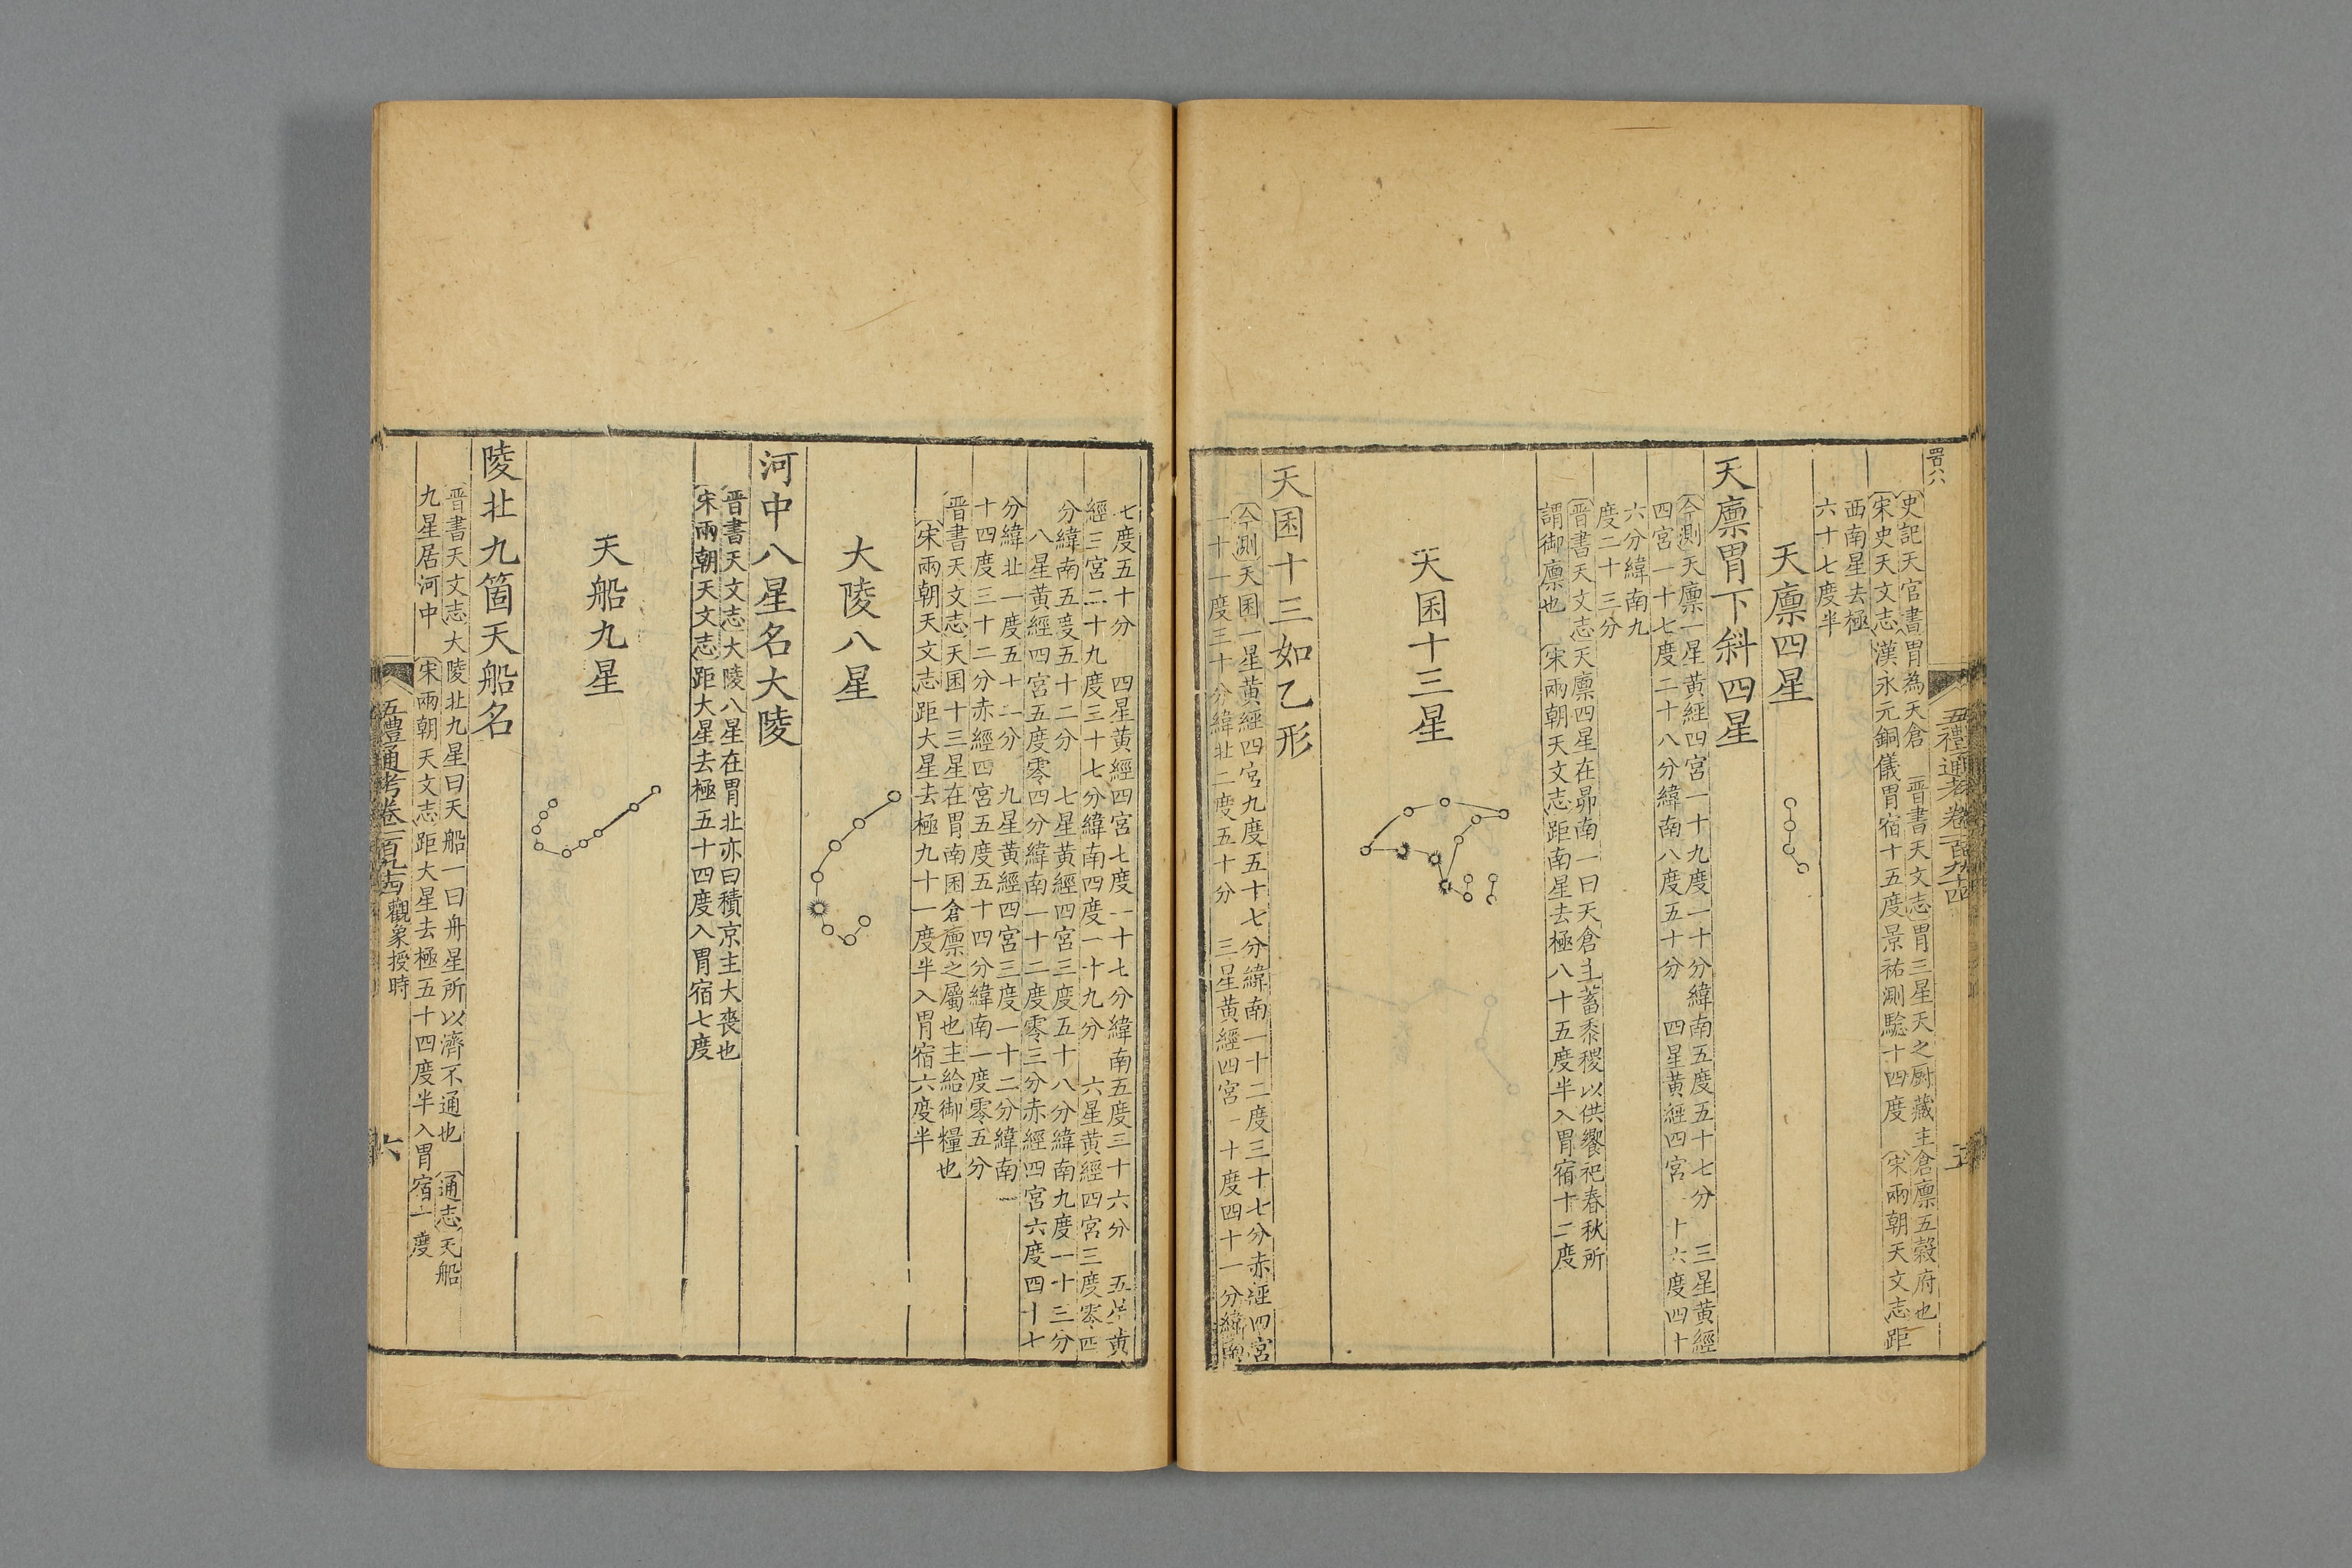 史記天官書胃為天倉 晉書天文志胃三星天之厨藏主倉廪五穀府也
宋史天文志漢永元銅儀胃宿十五度景祐測驗十四度 宋兩朝天文志距
西南星去極
六十七度半
天廪四星
天廪胃下斜四星
今測天廪一星黄經四宮一十九度一十分緯南五度五十七分 三星黄經
四宮一十七度二十八分緯南八度五十分 四星黄經四宮一十六度四十
六分緯南九
度二十三分
晉書天文志天廪四星在昴南一曰天倉主蓄黍稷以供饗祀春秋所
謂御廪也 宋兩朝天文志距南星去極八十五度半入胃宿十二度
天囷十三星
天囷十三如乙形
今測天囷一星黄經四宮九度五十七分緯南一十二度三十七分赤經四宮
一十一度三十分緯北二度五十分 三星黄經四宮一十度四十一分緯南
五禮通考卷一百九十四
五
七度五十分 四星黄經四宮七度一十七分緯南五度三十六分 五星黄
經三宮二十九度三十七分緯南四度一十九分 六星黄經四宮三度零四
分緯南五度五十二分 七星黄經四宮三度五十八分緯南九度一十三分
八星黄經四宮五度零四分緯南一十二度零三分赤經四宮六度四十七
分緯北一度五十二分 九星黄經四宮三度一十二分緯南一
十四度三十二分赤經四宮五度五十四分緯南一度零五分
晉書天文志天囷十三星在胃南囷倉廪之屬也主給御糧也
宋兩朝天文志距大星去極九十一度半入胃宿六度半
大陵八星
河中八星名大陵
晉書天文志大陵八星在胃北亦曰積京主大喪也
宋兩朝天文志距大星去極五十四度入胃宿七度
天船九星
陵北九箇天船名
晉書天文志大陵北九星曰天船一曰舟星所以濟不通也 通志天船
九星居河中 宋兩朝天文志距大星去極五十四度半入胃宿一度
五禮通考卷一百九十四 觀象授時
六